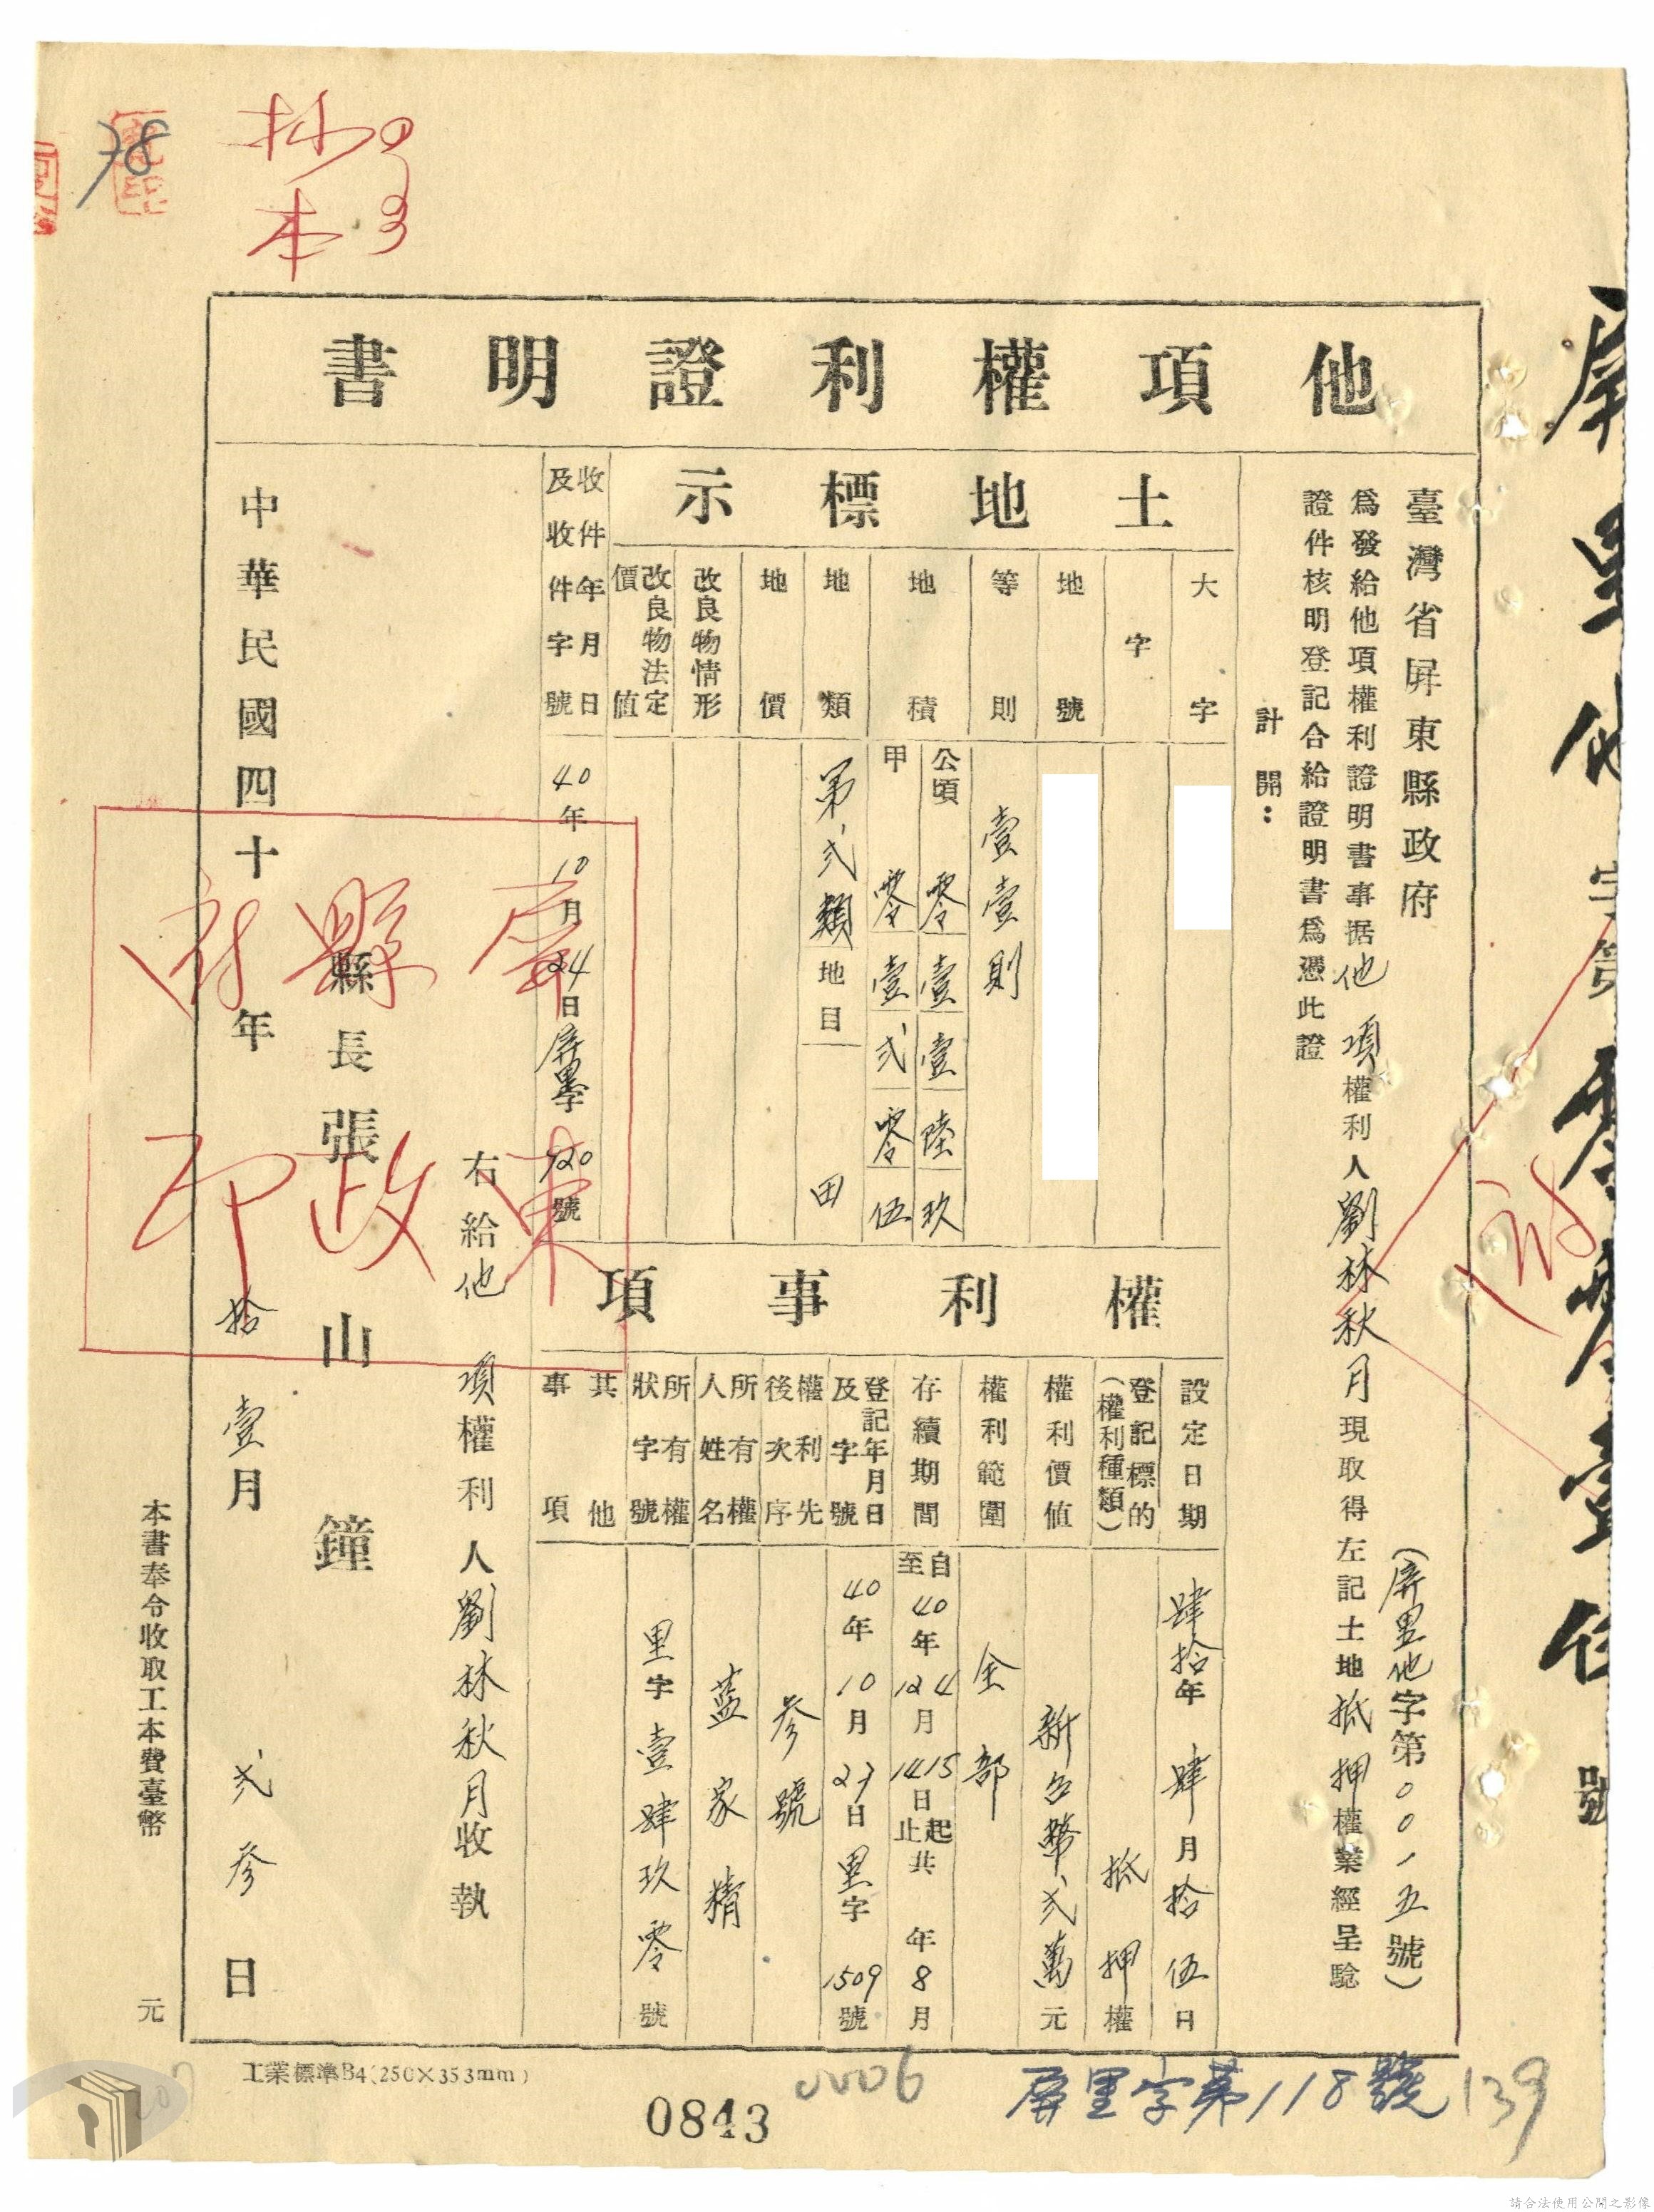 抄本
78
他項權利證明書
臺灣省屏東縣政府
(屏里他字第00一五號)
為發給他項權利證明書事据他項權利人劉林秋月現取得左記土地抵押權業經呈驗
證件核明登記合給證明書為憑此證
計開:
土地標示
大字
字
地號
等則 壹壹則
地積 公頃 零壹壹陸玖
甲 零壹弍零伍
地類 第弍類地目 田
地價
改良物情形
改良物法定價值
收件年月日及收件字號 40年10月24日屏里字920號
權利事項
設定日期 肆拾年肆月拾伍日
登記標的(權利種類) 抵押權
權利價值 新台幣弍萬元
權利範圍 全部
存續期間 自40年4月15日起
至12月14日止共 年8月
登記年月日及字號 40年10月27日里字1509號
權利先後次序 參號
所有權人姓名 蓋家精
所有權狀字號 里字壹肆玖零號
其他事項
右給他項權利人劉林秋月收執
縣長張山鐘
屏東縣政府印
中華民國四十年拾壹月弍參日
本書奉令收取工本費臺幣 元
屏里他字第零零壹伍號
工業標準B4(250×353mm)
0843
0006
屏里字第118號
139
請合法使用公開之影像